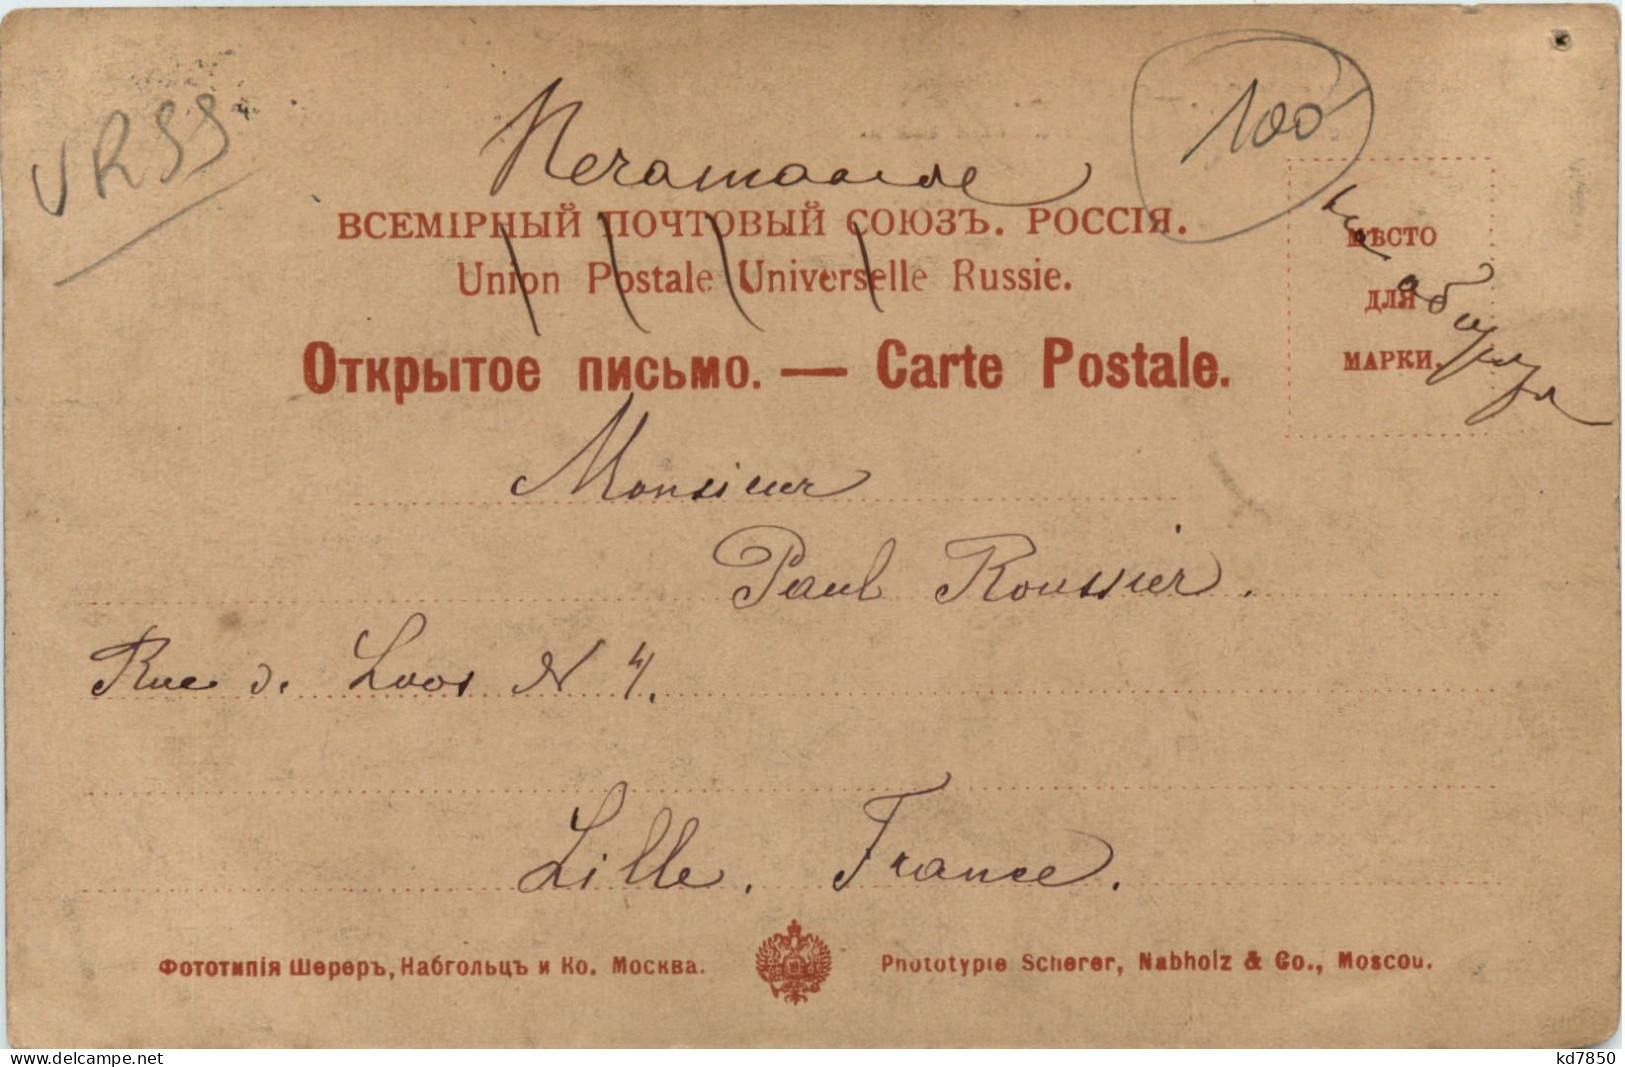 URSS
100
Печатное
ВСЕМІРНЫЙ ПОЧТОВЫЙ СОЮЗЪ. РОССІЯ.
Union Postale Universelle Russie.
МѢСТО
ДЛЯ
МАРКИ.
на об
Открытое письмо. — Carte Postale.
Monsieur
Paul Roussier.
Rue d. Loos N 4.
Lille. France.
Фототипія Шереръ, Набгольцъ и Ко. Москва.
Phototypie Scherer, Nabholz & Co., Moscou.
delcampe.net
kd7850